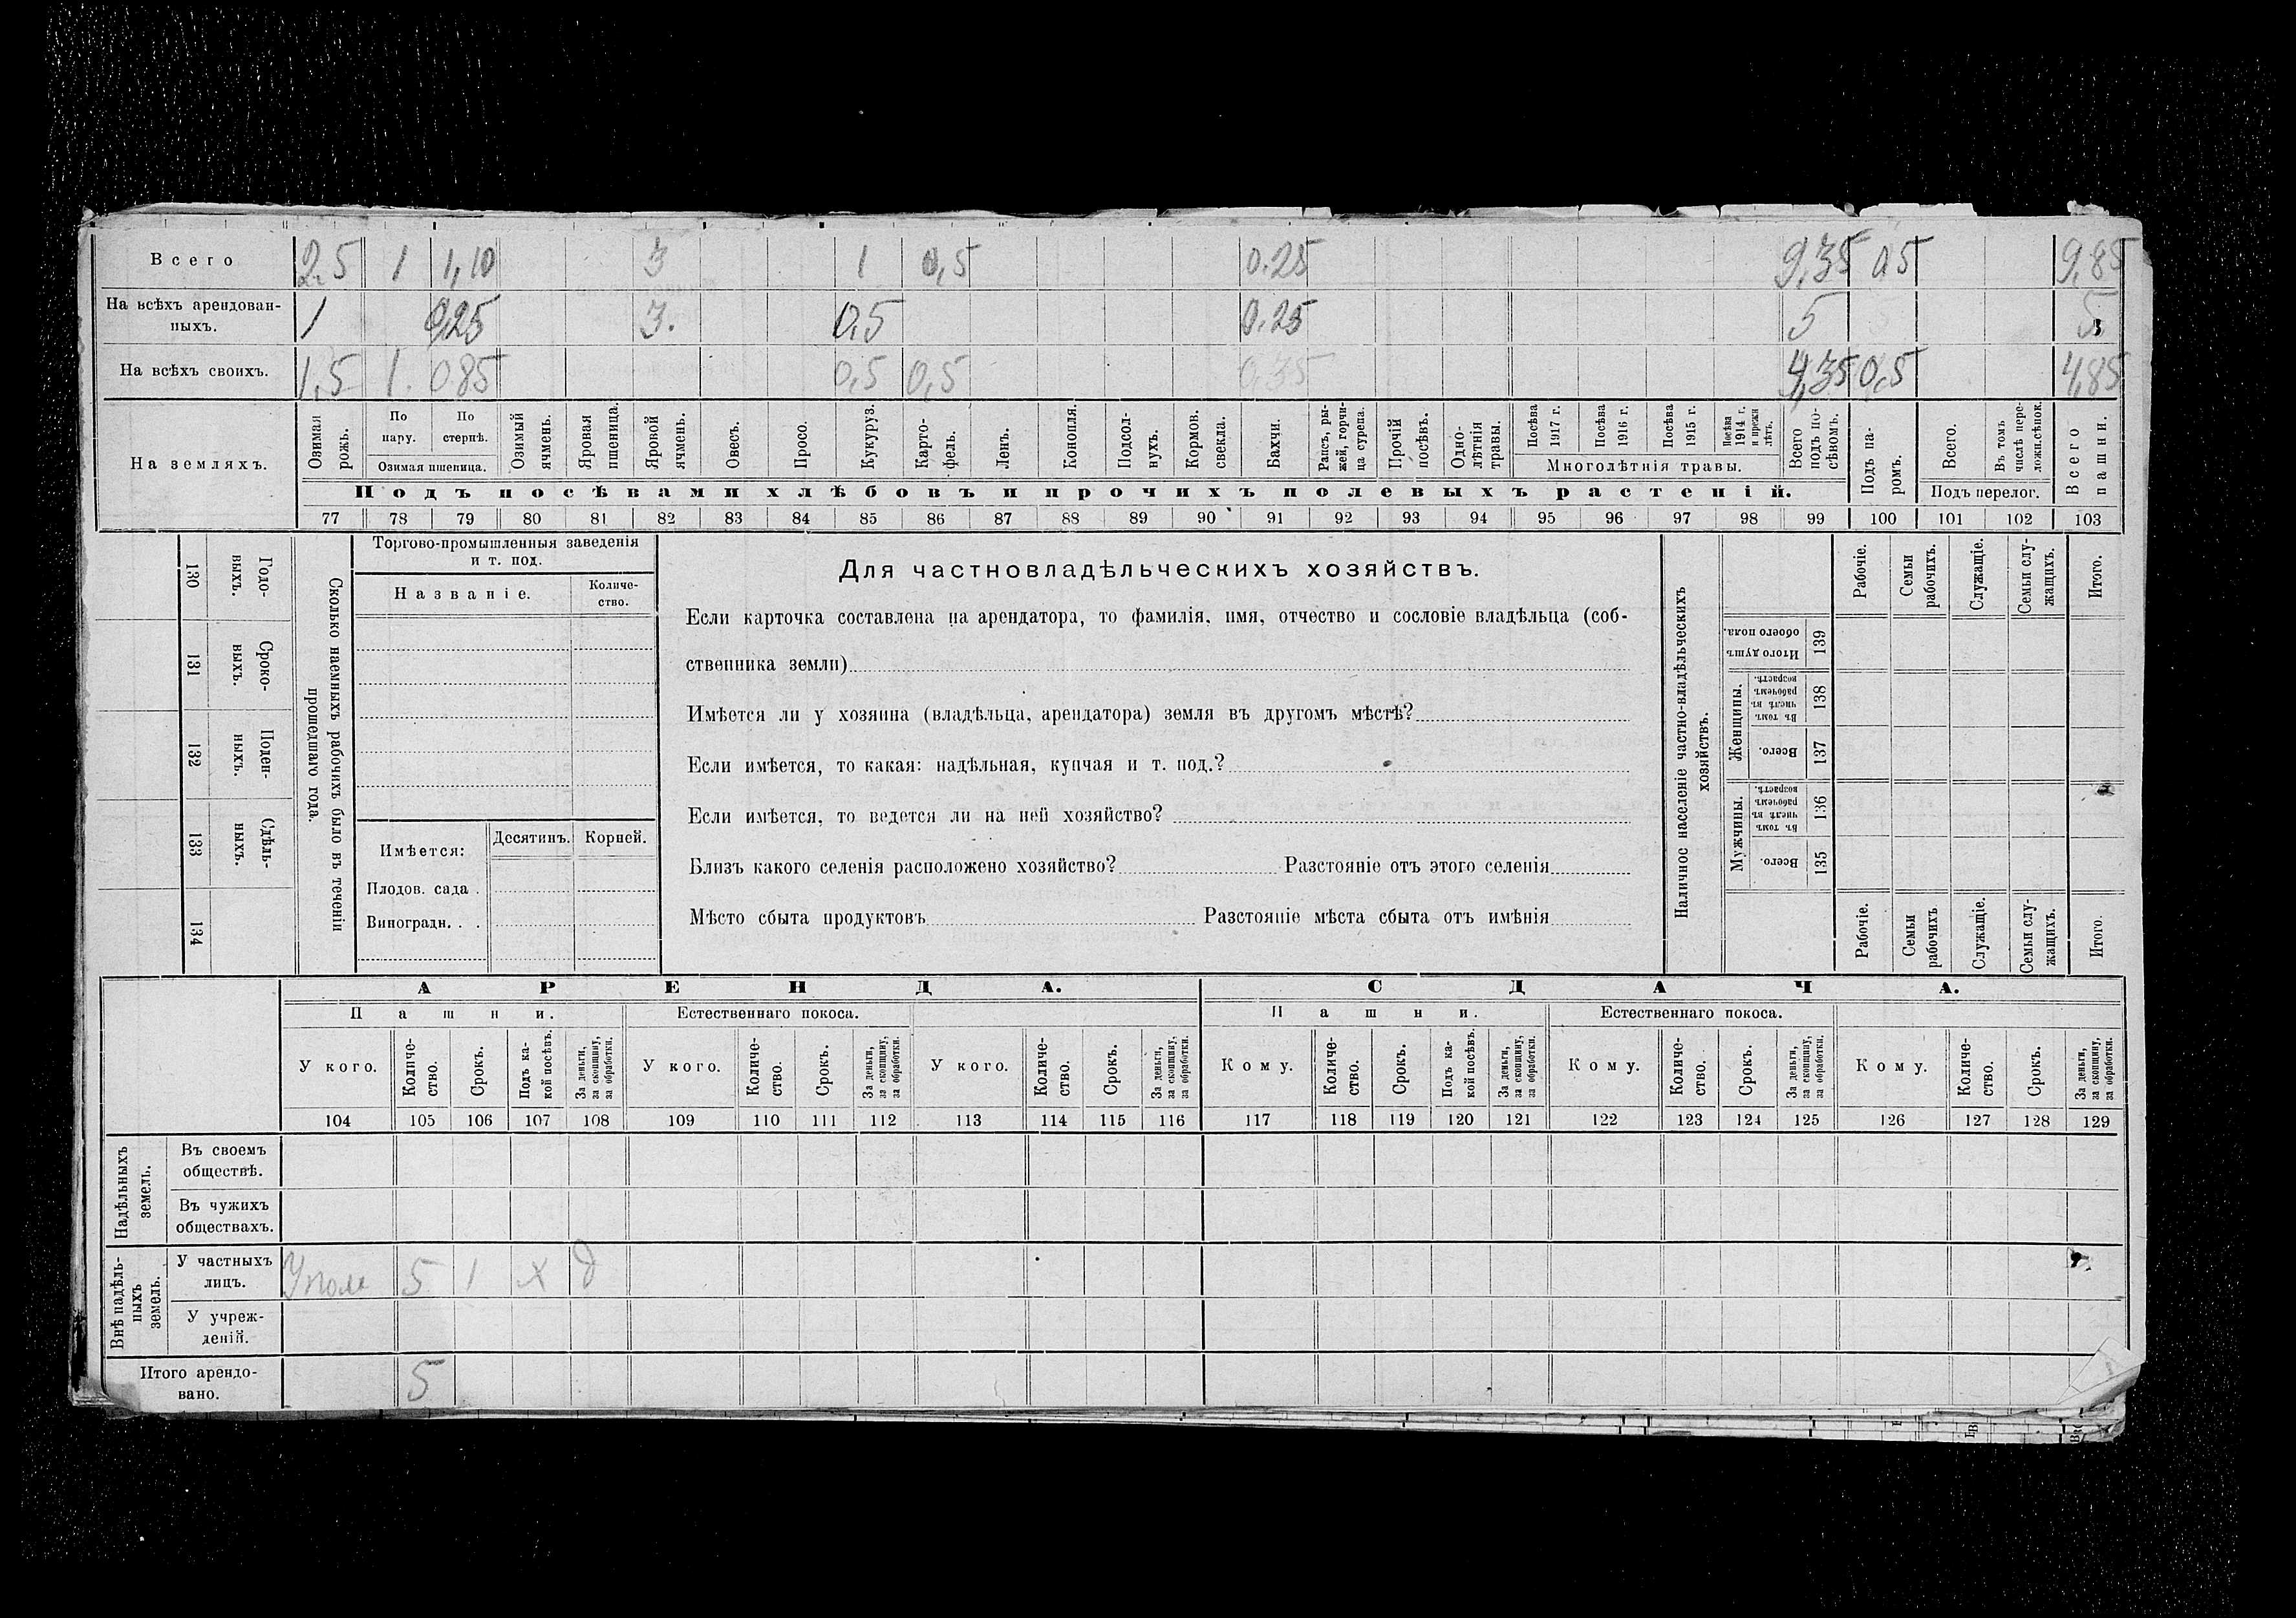 Всего 2.5 1 1,10 3 1 0,5 0.25 9,35 0,5 9,85
На всѣхъ арендован-
ныхъ. 1 0,25 3. 0,5 0.25 5 5
На всѣхъ своихъ. 1,5 1. 0,85 0,5 0,5 0,35 4,35 0,5 4,85
На земляхъ.
Озимая рожь.
По пару.
По стернѣ.
Озимая пшеница.
Озимый ячмень.
Яровая пшеница.
Яровой ячмень.
Овесъ.
Просо.
Кукуруз.
Карто-
фель.
Ленъ.
Конопля.
Подсол-
нухъ.
Кормов. свекла.
Бахчи.
Рапсъ, ры-
жей, горчи-
ца сурепа.
Прочій посѣвъ.
Одно-
лѣтнія травы.
Посѣва 1917 г.
Посѣва 1916 г.
Посѣва 1915 г.
Посѣва 1914 г. и прежн лѣтъ.
Многолѣтнія травы.
Всего подъ по-
сѣвомъ.
Подъ па-
ромъ.
Всего.
Въ томъ числѣ пере-
ложн.сѣнок.
Подъ перелог.
Всего пашни.
Подъ посѣвами хлѣбовъ и прочихъ полевыхъ растеній.
77 78 79 80 81 82 83 84 85 86 87 88 89 90 91 92 93 94 95 96 97 98 99 100 101 102 103
Годо-
ныхъ.
130
Сроко-
ныхъ.
131
Поден-
ныхъ.
132
Сдѣль-
ныхъ.
133
134
Сколько наемныхъ рабочихъ было въ теченіи
прошедшаго года.
Торгово-промышленныя заведенія
и т. под.
Названіе.
Количе-
ство.
Имѣется:
Десятинъ.
Корней.
Плодов. сада .
Виноградн. . .
Для частновладѣльческихъ хозяйствъ.
Если карточка составлена на арендатора, то фамилія, имя, отчество и сословіе владѣльца (соб-
ственника земли)
Имѣется ли у хозяина (владѣльца, арендатора) земля въ другомъ мѣстѣ?
Если имѣется, то какая: надѣльная, купчая и т. под.?
Если имѣется, то ведется ли на ней хозяйство?
Близъ какого селенія расположено хозяйство? Разстояніе отъ этого селенія
Мѣсто сбыта продуктовъ Разстояніе мѣста сбыта отъ имѣнія
Наличное населеніе частно-владѣльческихъ
хозяйствъ.
Рабочіе.
Семьи рабочихъ.
Служащіе.
Семьи слу-
жащихъ.
Итого.
Итого душъ обоего пола.
139
Женщины.
Въ томъ числѣ въ рабочемъ возрастѣ.
138
Всего.
137
Мужчины.
Въ томъ числѣ въ рабочемъ возрастѣ.
136
Всего.
135
Рабочіе.
Семьи рабочихъ
Служащіе.
Семьи слу-
жащихъ.
Итого.
АРЕНДА. СДАЧА.
Пашни. Естественнаго покоса. Пашни. Естественнаго покоса.
У кого.
Количе-
ство.
Срокъ.
Подъ ка-
кой посѣвъ.
За деньги, за скопщину, за обработки.
У кого.
Количе-
ство.
Срокъ.
За деньги, за скопщину, за обработки.
У кого.
Количе-
ство.
Срокъ.
За деньги, за скопщину, за обработки.
Кому.
Количе-
ство.
Срокъ.
Подъ ка-
кой посѣвъ.
За деньги, за скопщину, за обработки.
Кому.
Количе-
ство.
Срокъ.
За деньги, за скопщину, за обработки.
Кому.
Количе-
ство.
Срокъ.
За деньги, за скопщину, за обработки.
104 105 106 107 108 109 110 111 112 113 114 115 116 117 118 119 120 121 122 123 124 125 126 127 128 129
Надѣльныхъ земель.
Въ своемъ
обществѣ.
Въ чужихъ
обществахъ.
Внѣ надѣль-
ныхъ земель.
У частныхъ
лицъ. 5 1 х д
У учреж-
деній.
Итого арендо-
вано. 5